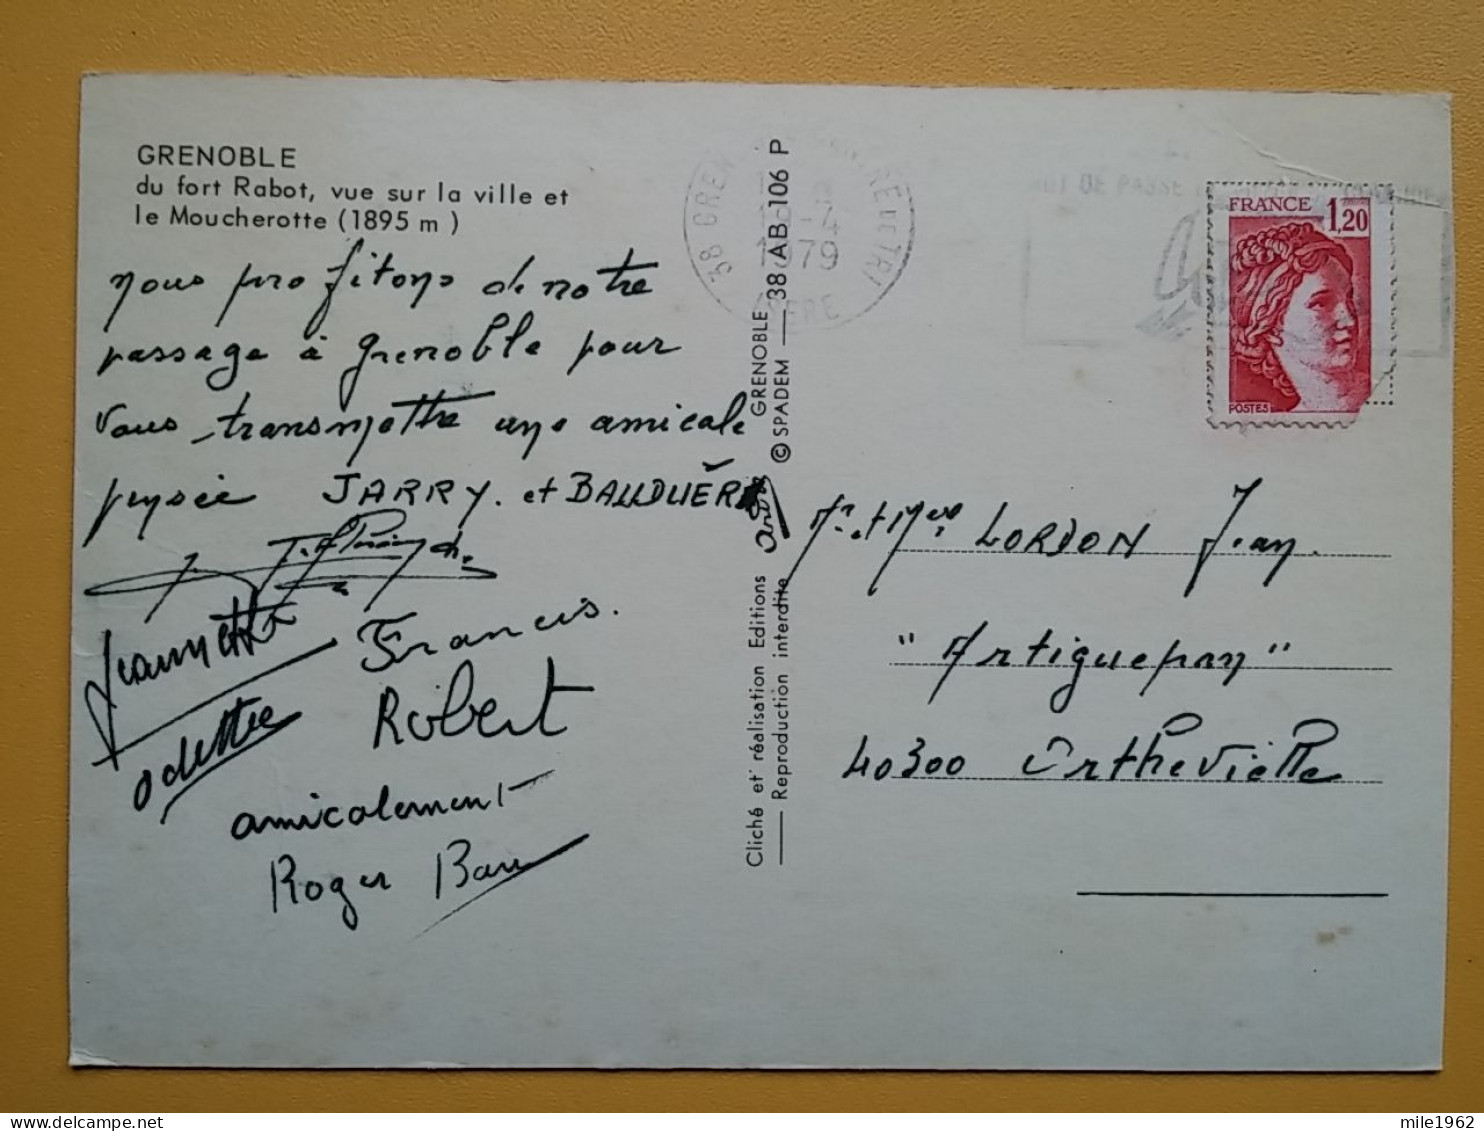 GRENOBLE
du fort Rabot, vue sur la ville et
le Moucherotte (1895 m)
nous profitons de notre
passage à Grenoble pour
vous transmettre une amicale
pensée JARRY. et BAUDUÈR
Jeannette
Francis.
Odette
Robert
amicalement
Roger
GRENOBLE 38 AB 106 P
© SPADEM
Cliché et réalisation Editions
Reproduction interdite
38 GRE
1979
ISERE
FRANCE 1,20
POSTES
Mr et Mme LORDON Jean.
"Artiguepan"
40300 Orthevielle
mile1962